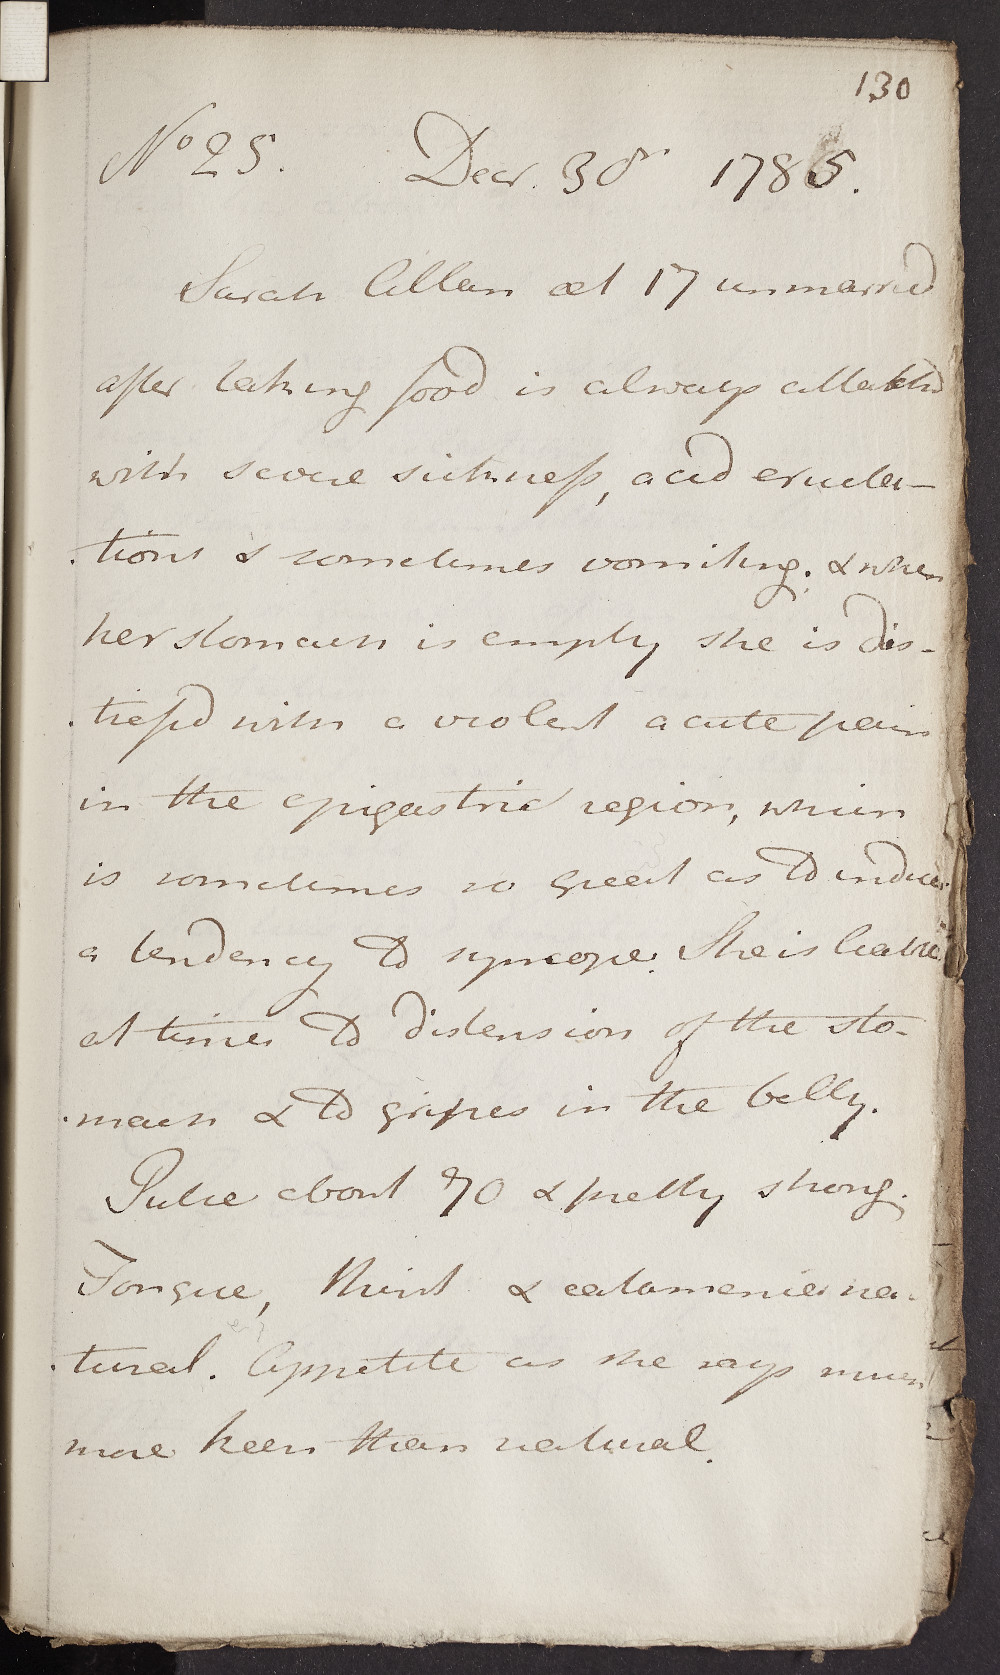 130
No 25. Decr. 30th 1785.
Sarah Allan æt 17 unmarried
after taking food is always attackd
with severe sickness, acid eructa-
-tions & sometimes vomiting. & when
her stomach is empty she is dis-
-tress'd with a violent acute pain
in the epigastric region, which
is sometimes so great as to induce
a tendency to syncope. She is liable
at times to distension of the sto-
-mach & to gripes in the belly.
Pulse about 70 & pretty strong.
Tongue, thirst & catamenia na-
-tural. Appetite as she says much
more keen than natural.